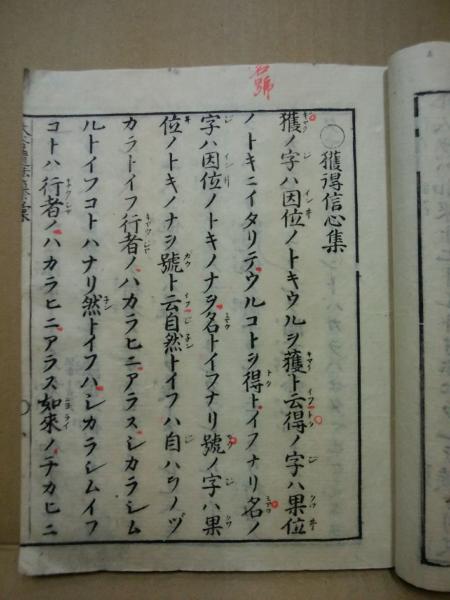 名號
獲得信心集
獲ノ字ハ因位ノトキウルヲ獲ト云得ノ字ハ果位
ノトキニイタリテウルコトヲ得トイフナリ名ノ
字ハ因位ノトキノナヲ名トイフナリ號ノ字ハ果
位ノトキノナヲ號ト云自然トイフハ自ハヲノヅ
カラトイフ行者ノハカラヒニアラスシカラシム
ルトイフコトハナリ然トイフハシカラシムイフ
コトハ行者ノハカラヒニアラス如來ノチカヒニ